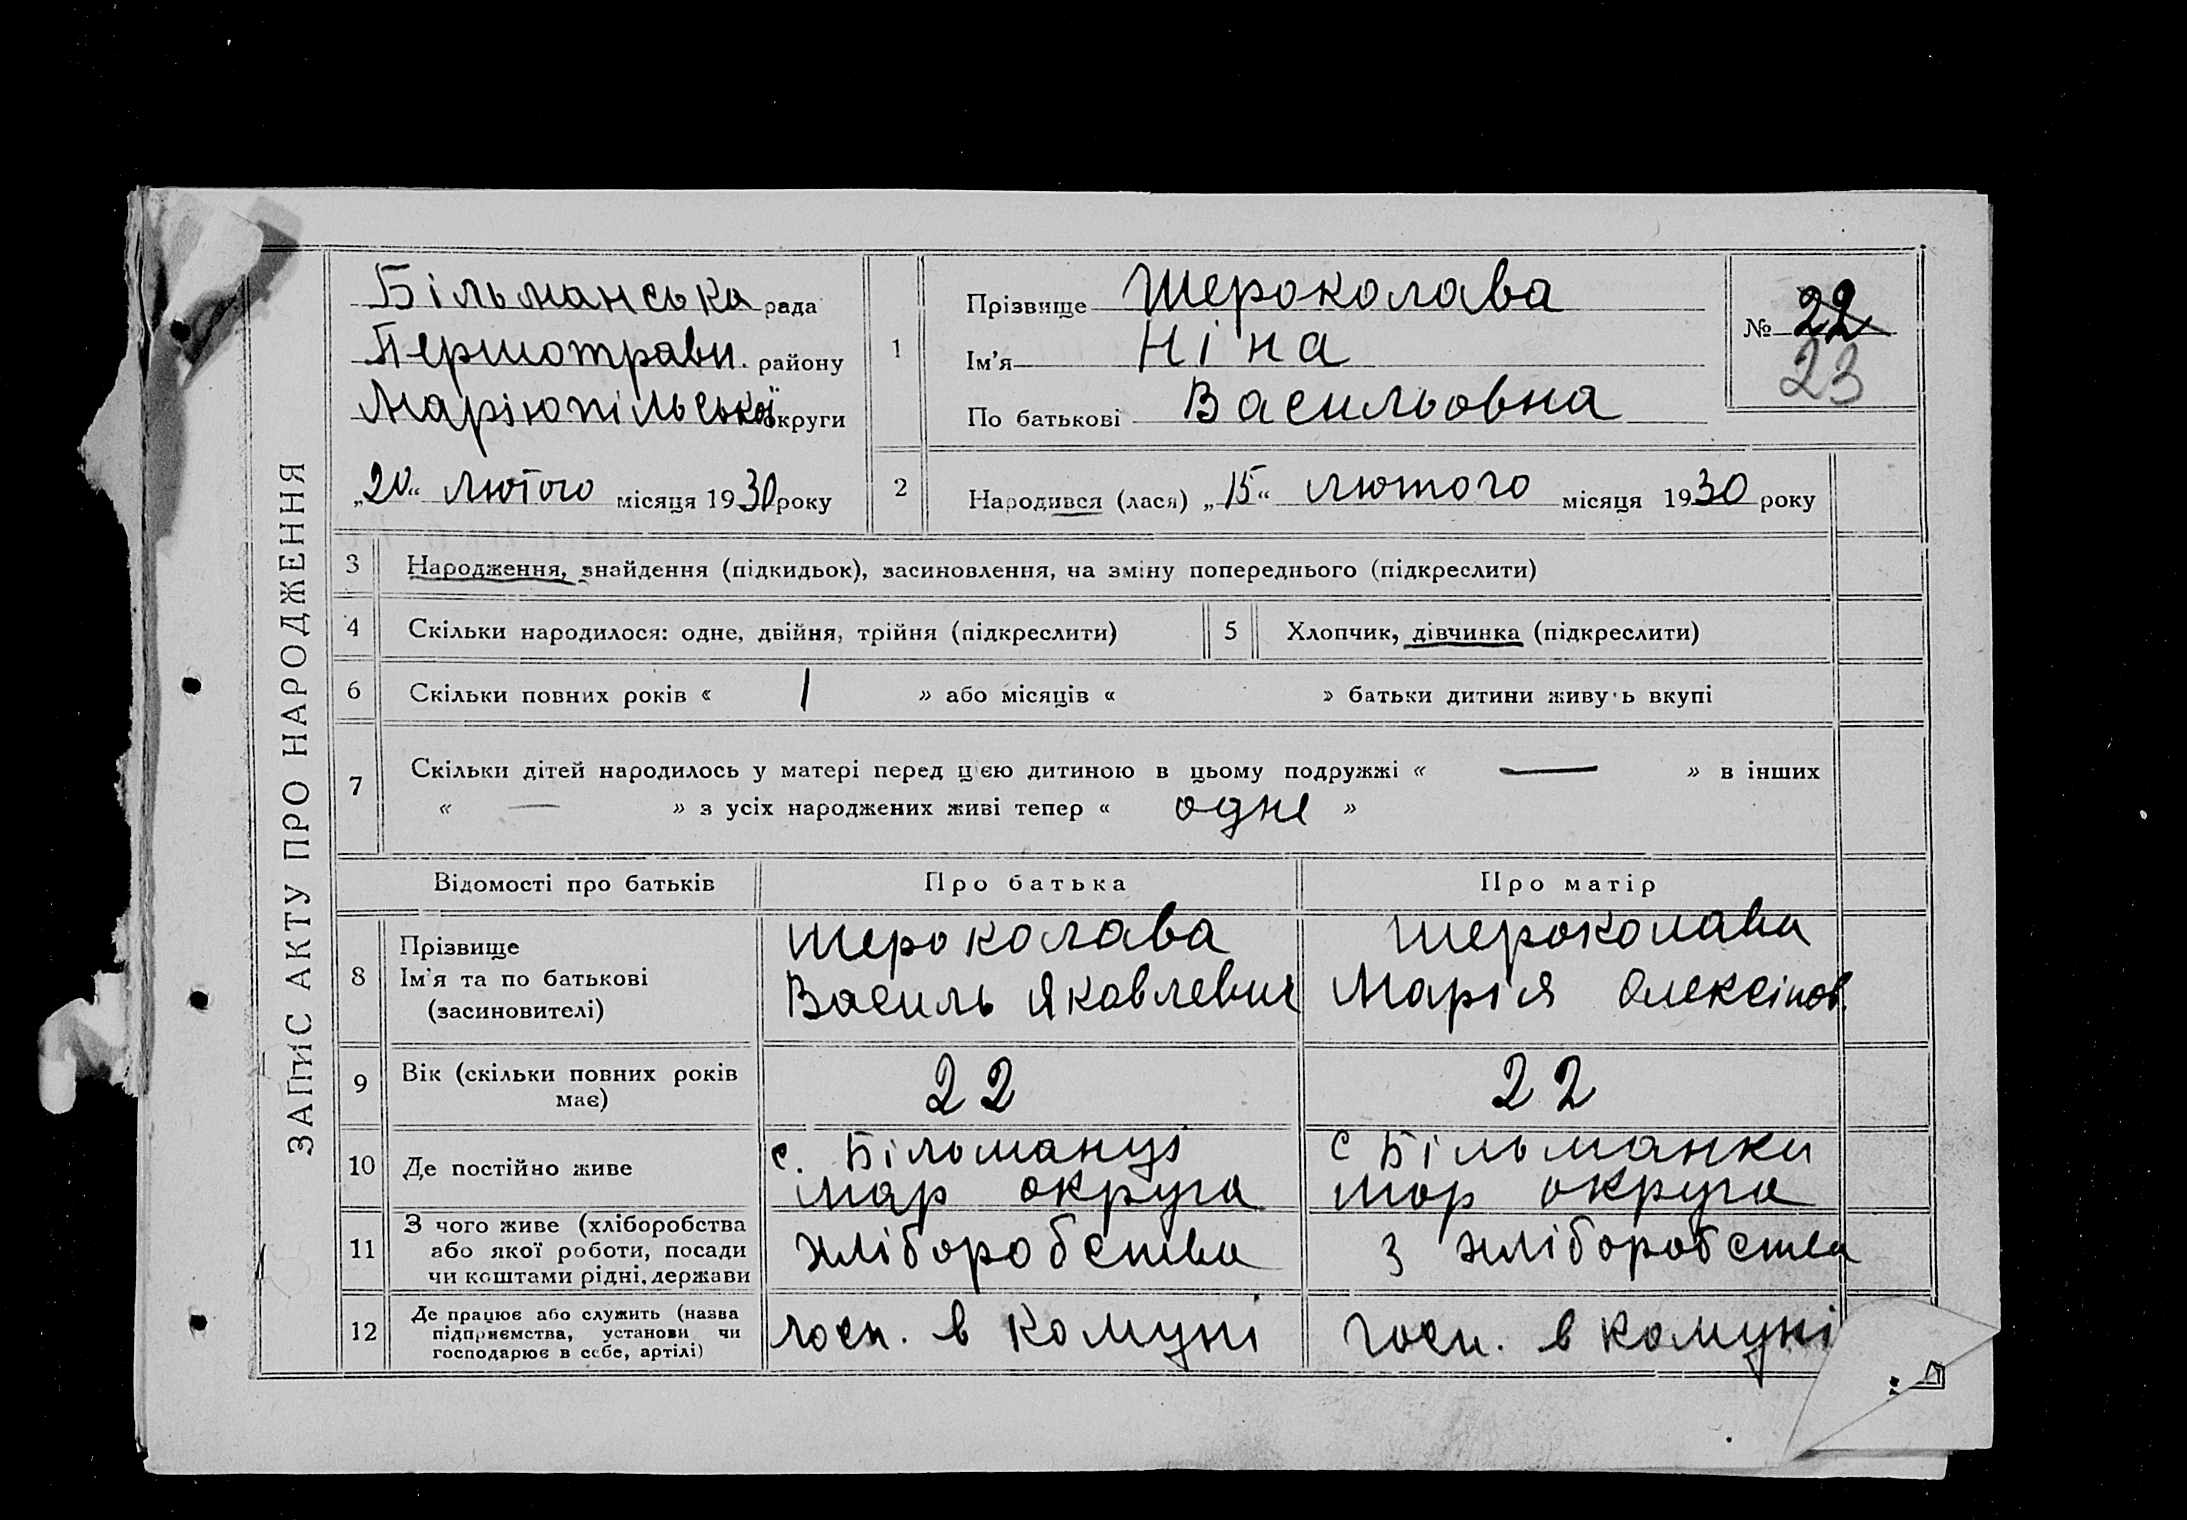 ЗАПИС АКТУ ПРО НАРОДЖЕННЯ
Більманська рада
Першотравн. району
Маріюпільської округи
„20“ лютого місяця 1930 року
1
Прізвище Шероколава
Ім’я Ніна
По батькові Васильовна
№ 22
23
2
Народився (лася) „15“ лютого місяця 1930 року
3 Народження, знайдення (підкидьок), засиновлення, на зміну попереднього (підкреслити)
4 Скільки народилося: одне, двійня, трійня (підкреслити) 5 Хлопчик, дівчинка (підкреслити)
6 Скільки повних років « 1 » або місяців « » батьки дитини живу ь вкупі
7 Скільки дітей народилось у матері перед цією дитиною в цьому подружжі « — » в інших
« — » з усіх народжених живі тепер « одне »
Відомості про батьків Про батька Про матір
8 Прізвище
Ім’я та по батькові
(засиновителі)
Шероколава
Василь Яковлевич
Шероколава
Марія Олексіїов.
9 Вік (скільки повних років
має)
22
22
10 Де постійно живе
с. Більманці
Мар округа
с Більманки
Мар округа
11 З чого живе (хліборобства
або якої роботи, посади
чи коштами рідні, держави
хліборобства
з хліборобства
12 Де працює або служить (назва
підприємства, установи чи
господарює в себе, артілі)
госп. в комуні
госп. в комуні